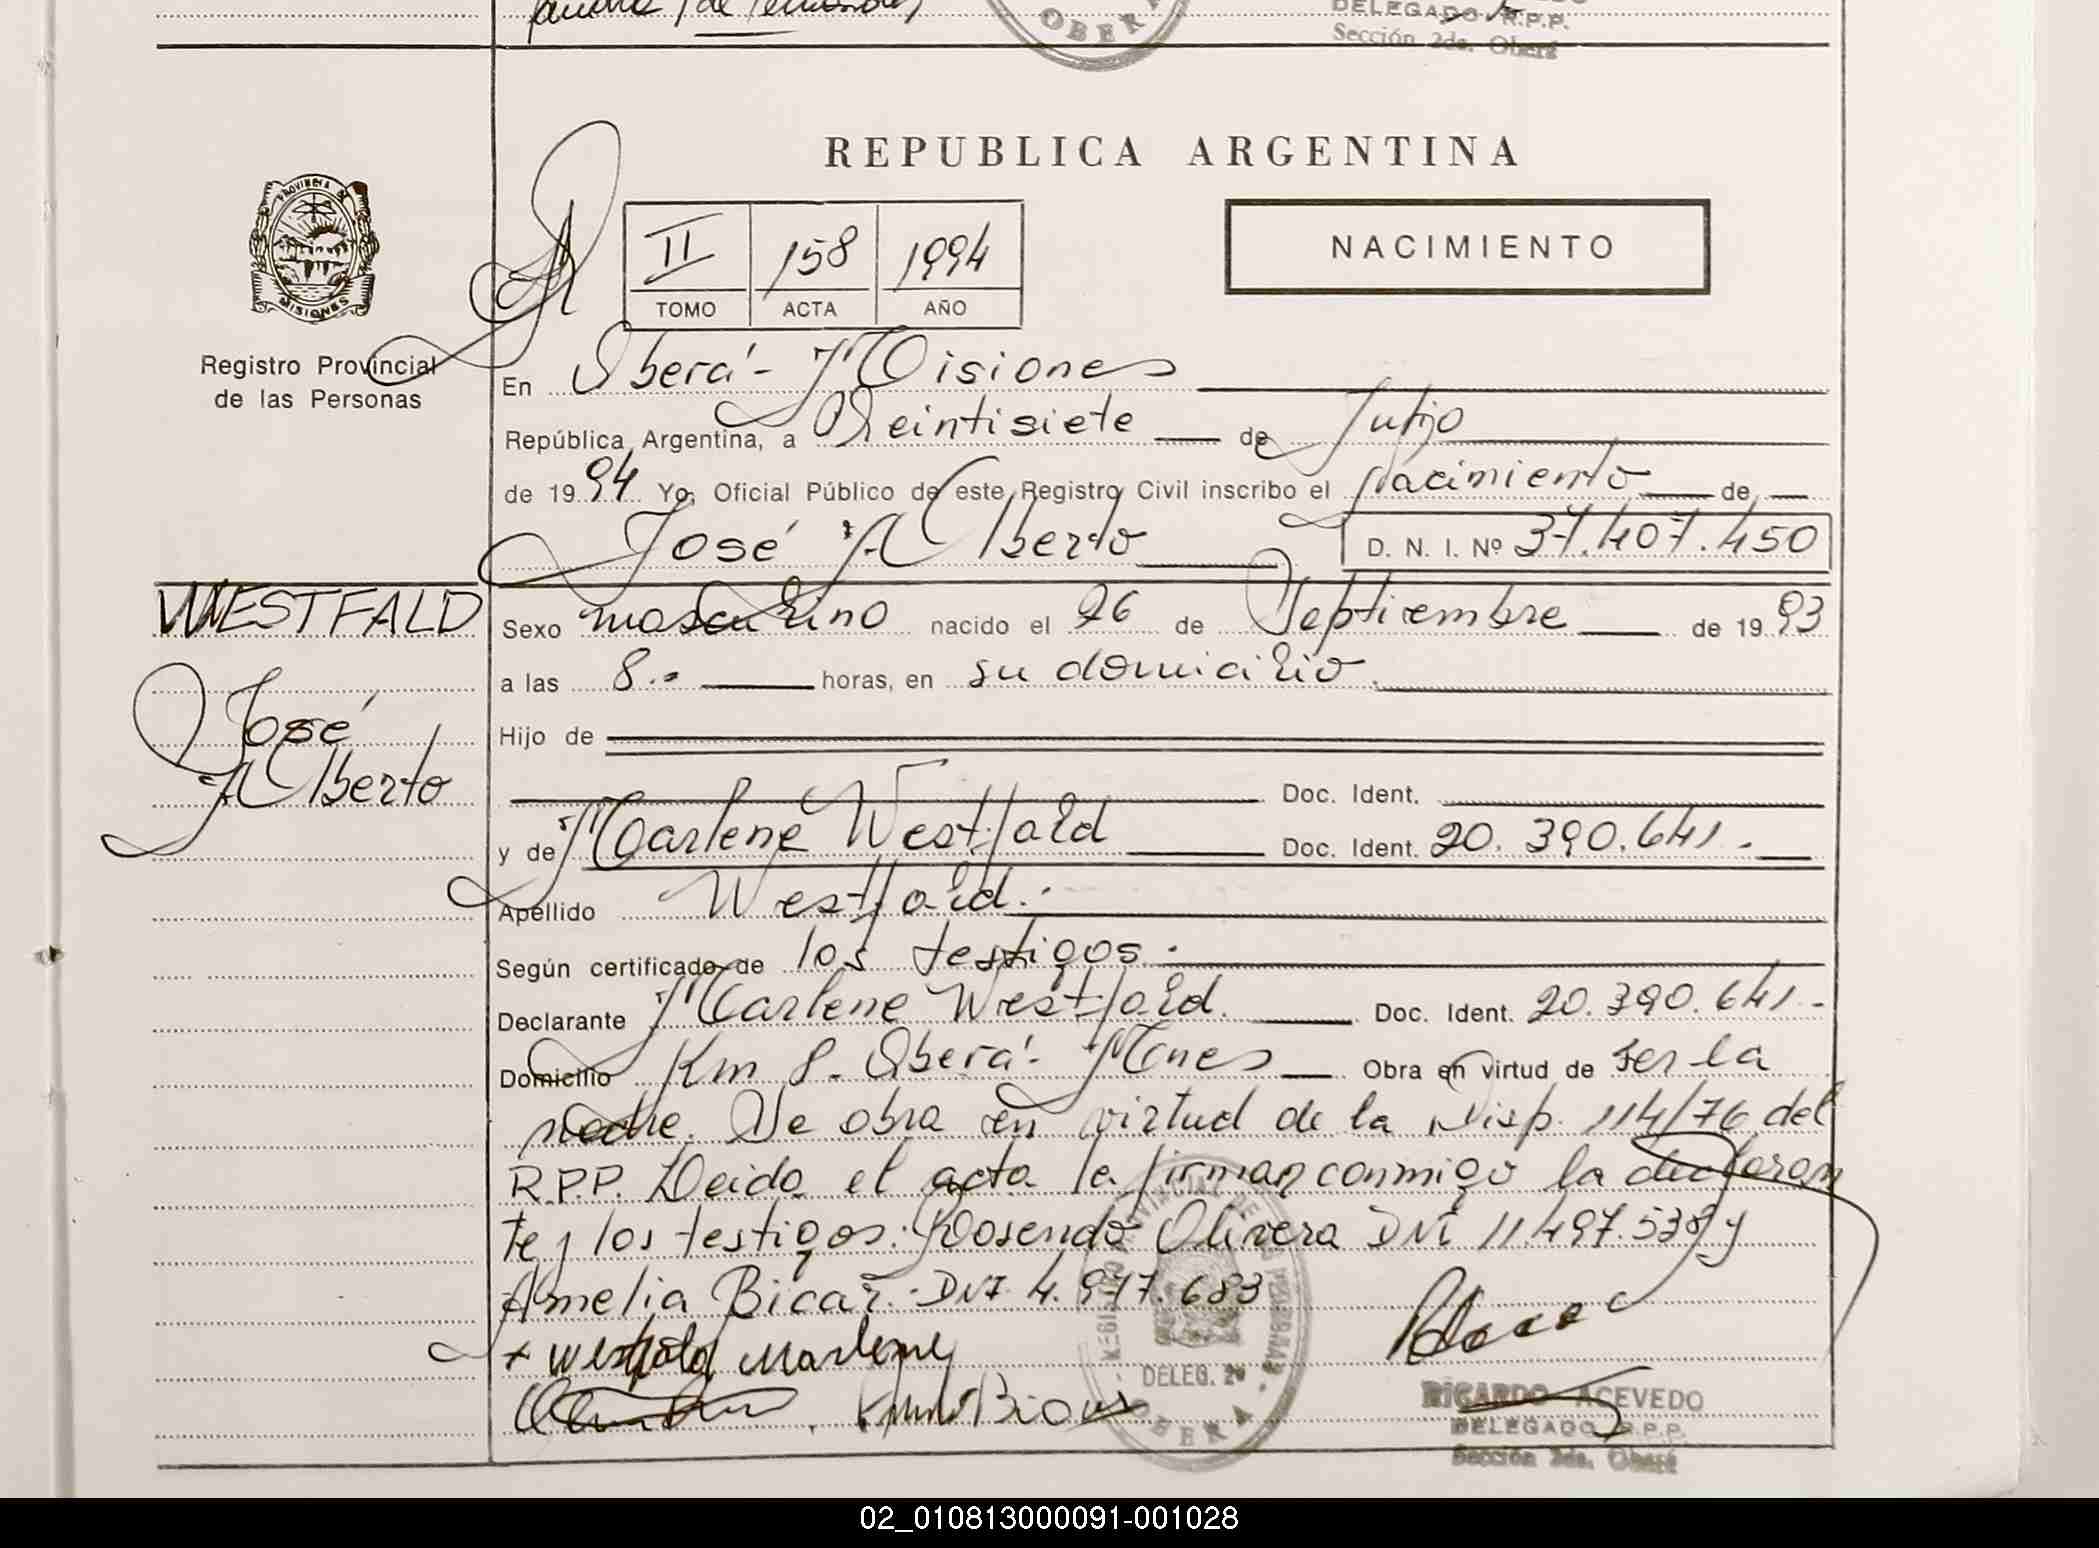 OBERA
DELEGADO R.P.P.
Sección 2da. Oberá
REPUBLICA ARGENTINA
PROVINCIA DE
MISIONES
II 158 1994
TOMO ACTA AÑO
NACIMIENTO
Registro Provincial
de las Personas
En Oberá - Misiones
República Argentina, a Veintisiete de Julio
de 1994 Yo, Oficial Público de este Registro Civil inscribo el nacimiento de
José Alberto D. N. I. Nº 37.407.450
WESTFALD
José
Alberto
Sexo masculino nacido el 26 de Septiembre de 1993
a las 8.- horas, en su domicilio.
Hijo de
Doc. Ident.
y de Marlene Westfald Doc. Ident. 20.390.641.-
Apellido Westfald.-
Según certificado de los testigos.-
Declarante Marlene Westfald. Doc. Ident. 20.390.641.-
Domicilio Km 8- Oberá- Mnes Obra en virtud de ser la
madre. Se obra en virtud de la Disp. 114/76 del
R.P.P. Leida el acta la firman conmigo la declaran
te y los testigos: Rosendo Olivera DNI 11.497.538 y
Amelia Bicar.- DNI 4.977.683
+ Westfald Marlene
REGISTRO PROVINCIAL DE LAS PERSONAS
DELEG. 2a
OBERA
RICARDO ACEVEDO
DELEGADO R.P.P.
Sección 2da. Oberá
02_010813000091-001028